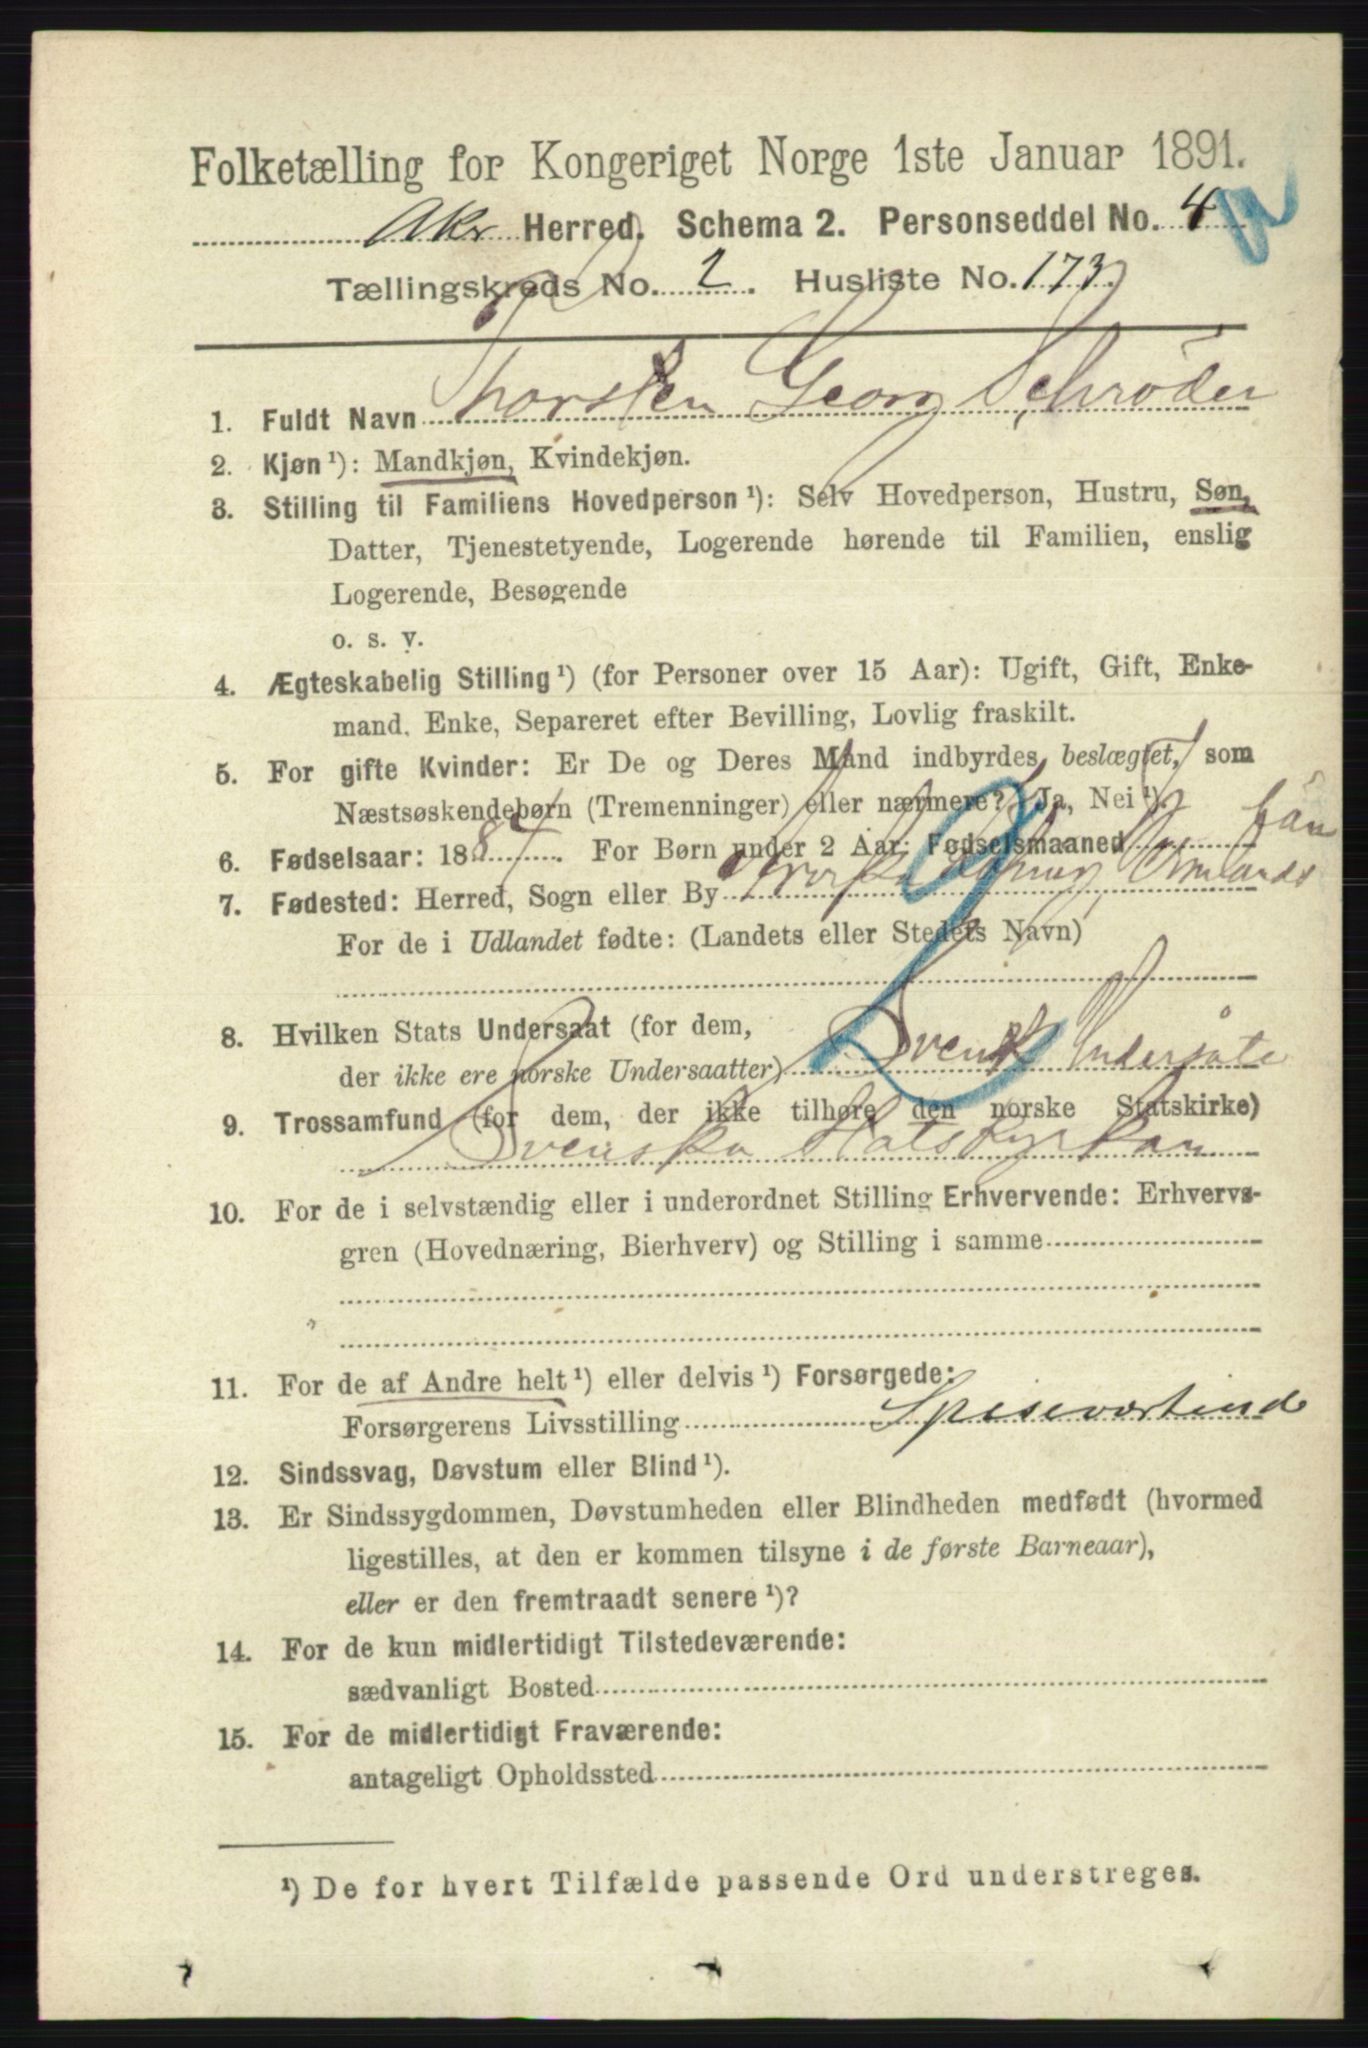 Folketælling for Kongeriget Norge 1ste Januar 1891.
Akr Herred. Schema 2. Personseddel No. 4
Tællingskreds No. 2. Husliste No. 173.
1. Fuldt Navn Thorsten Georg Schröder
2. Kjøn¹): Mandkjøn, Kvindekjøn.
3. Stilling til Familiens Hovedperson¹): Selv Hovedperson, Hustru, Søn,
Datter, Tjenestetyende, Logerende hørende til Familien, enslig
Logerende, Besøgende
o. s. v.
4. Ægteskabelig Stilling¹) (for Personer over 15 Aar): Ugift, Gift, Enke-
mand, Enke, Separeret efter Bevilling, Lovlig fraskilt.
5. For gifte Kvinder: Er De og Deres Mand indbyrdes beslægtet, som
Næstsøskendebørn (Tremenninger) eller nærmere? Ja, Nei¹).
6. Fødselsaar: 1887. For Børn under 2 Aar: Fødselsmaaned län
7. Fødested: Herred, Sogn eller By Vermlands
For de i Udlandet fødte: (Landets eller Stedets Navn)
8. Hvilken Stats Undersaat (for dem,
der ikke ere norske Undersaatter) Svensk Undersåte
9. Trossamfund (for dem, der ikke tilhøre den norske Statskirke)
Svenska Statskyrkan
10. For de i selvstændig eller i underordnet Stilling Erhvervende: Erhvervs-
gren (Hovednæring, Bierhverv) og Stilling i samme
11. For de af Andre helt¹) eller delvis¹) Forsørgede:
Forsørgerens Livsstilling Spiseværtinde
12. Sindssvag, Døvstum eller Blind¹).
13. Er Sindssygdommen, Døvstumheden eller Blindheden medfødt (hvormed
ligestilles, at den er kommen tilsyne i de første Barneaar),
eller er den fremtraadt senere¹)?
14. For de kun midlertidigt Tilstedeværende:
sædvanligt Bosted
15. For de midlertidigt Fraværende:
antageligt Opholdssted
¹) De for hvert Tilfælde passende Ord understreges.